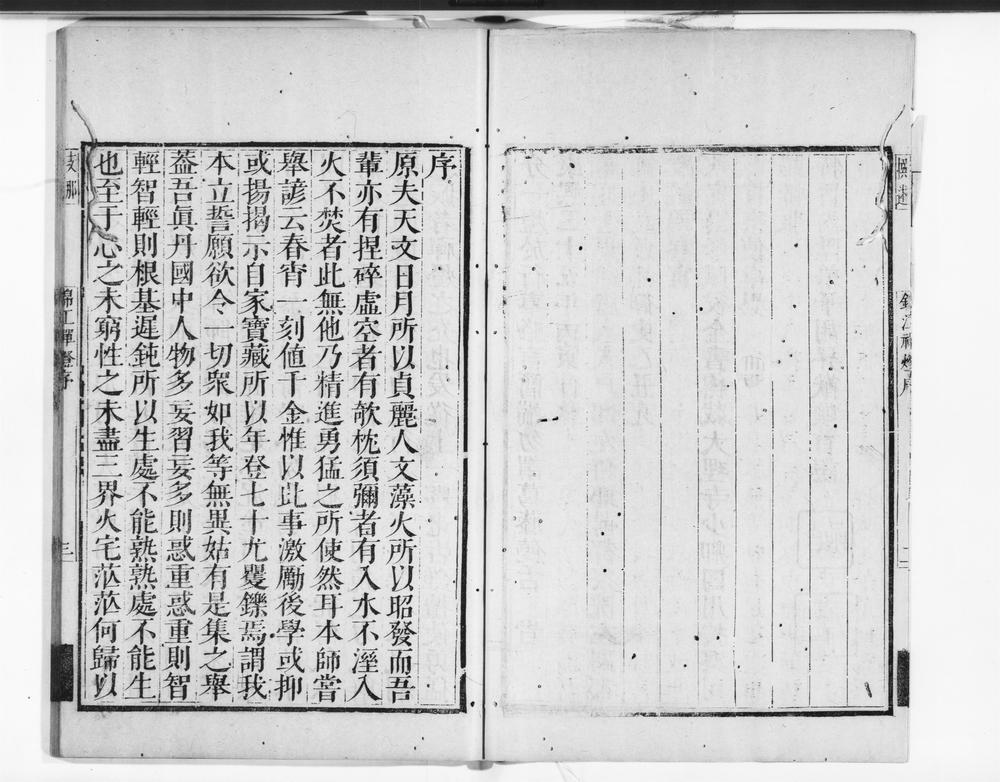 序
原夫天文日月所以貞麗人文藻火所以昭發而吾
輩亦有揑碎虛空者有欹枕須彌者有入水不溼入
火不焚者此無他乃精進勇猛之所使然耳本師嘗
舉諺云春宵一刻値千金惟以此事激厲後學或抑
或揚揭示自家寶藏所以年登七十尤矍鑠焉謂我
本立誓願欲令一切衆如我等無異姑有是集之舉
葢吾眞丹國中人物多妄習妄多則惑重惑重則智
輕智輕則根基遲鈍所以生處不能熟熟處不能生
也至于心之未窮性之未盡三界火宅茫茫何歸以
支那
錦江禪燈序
三